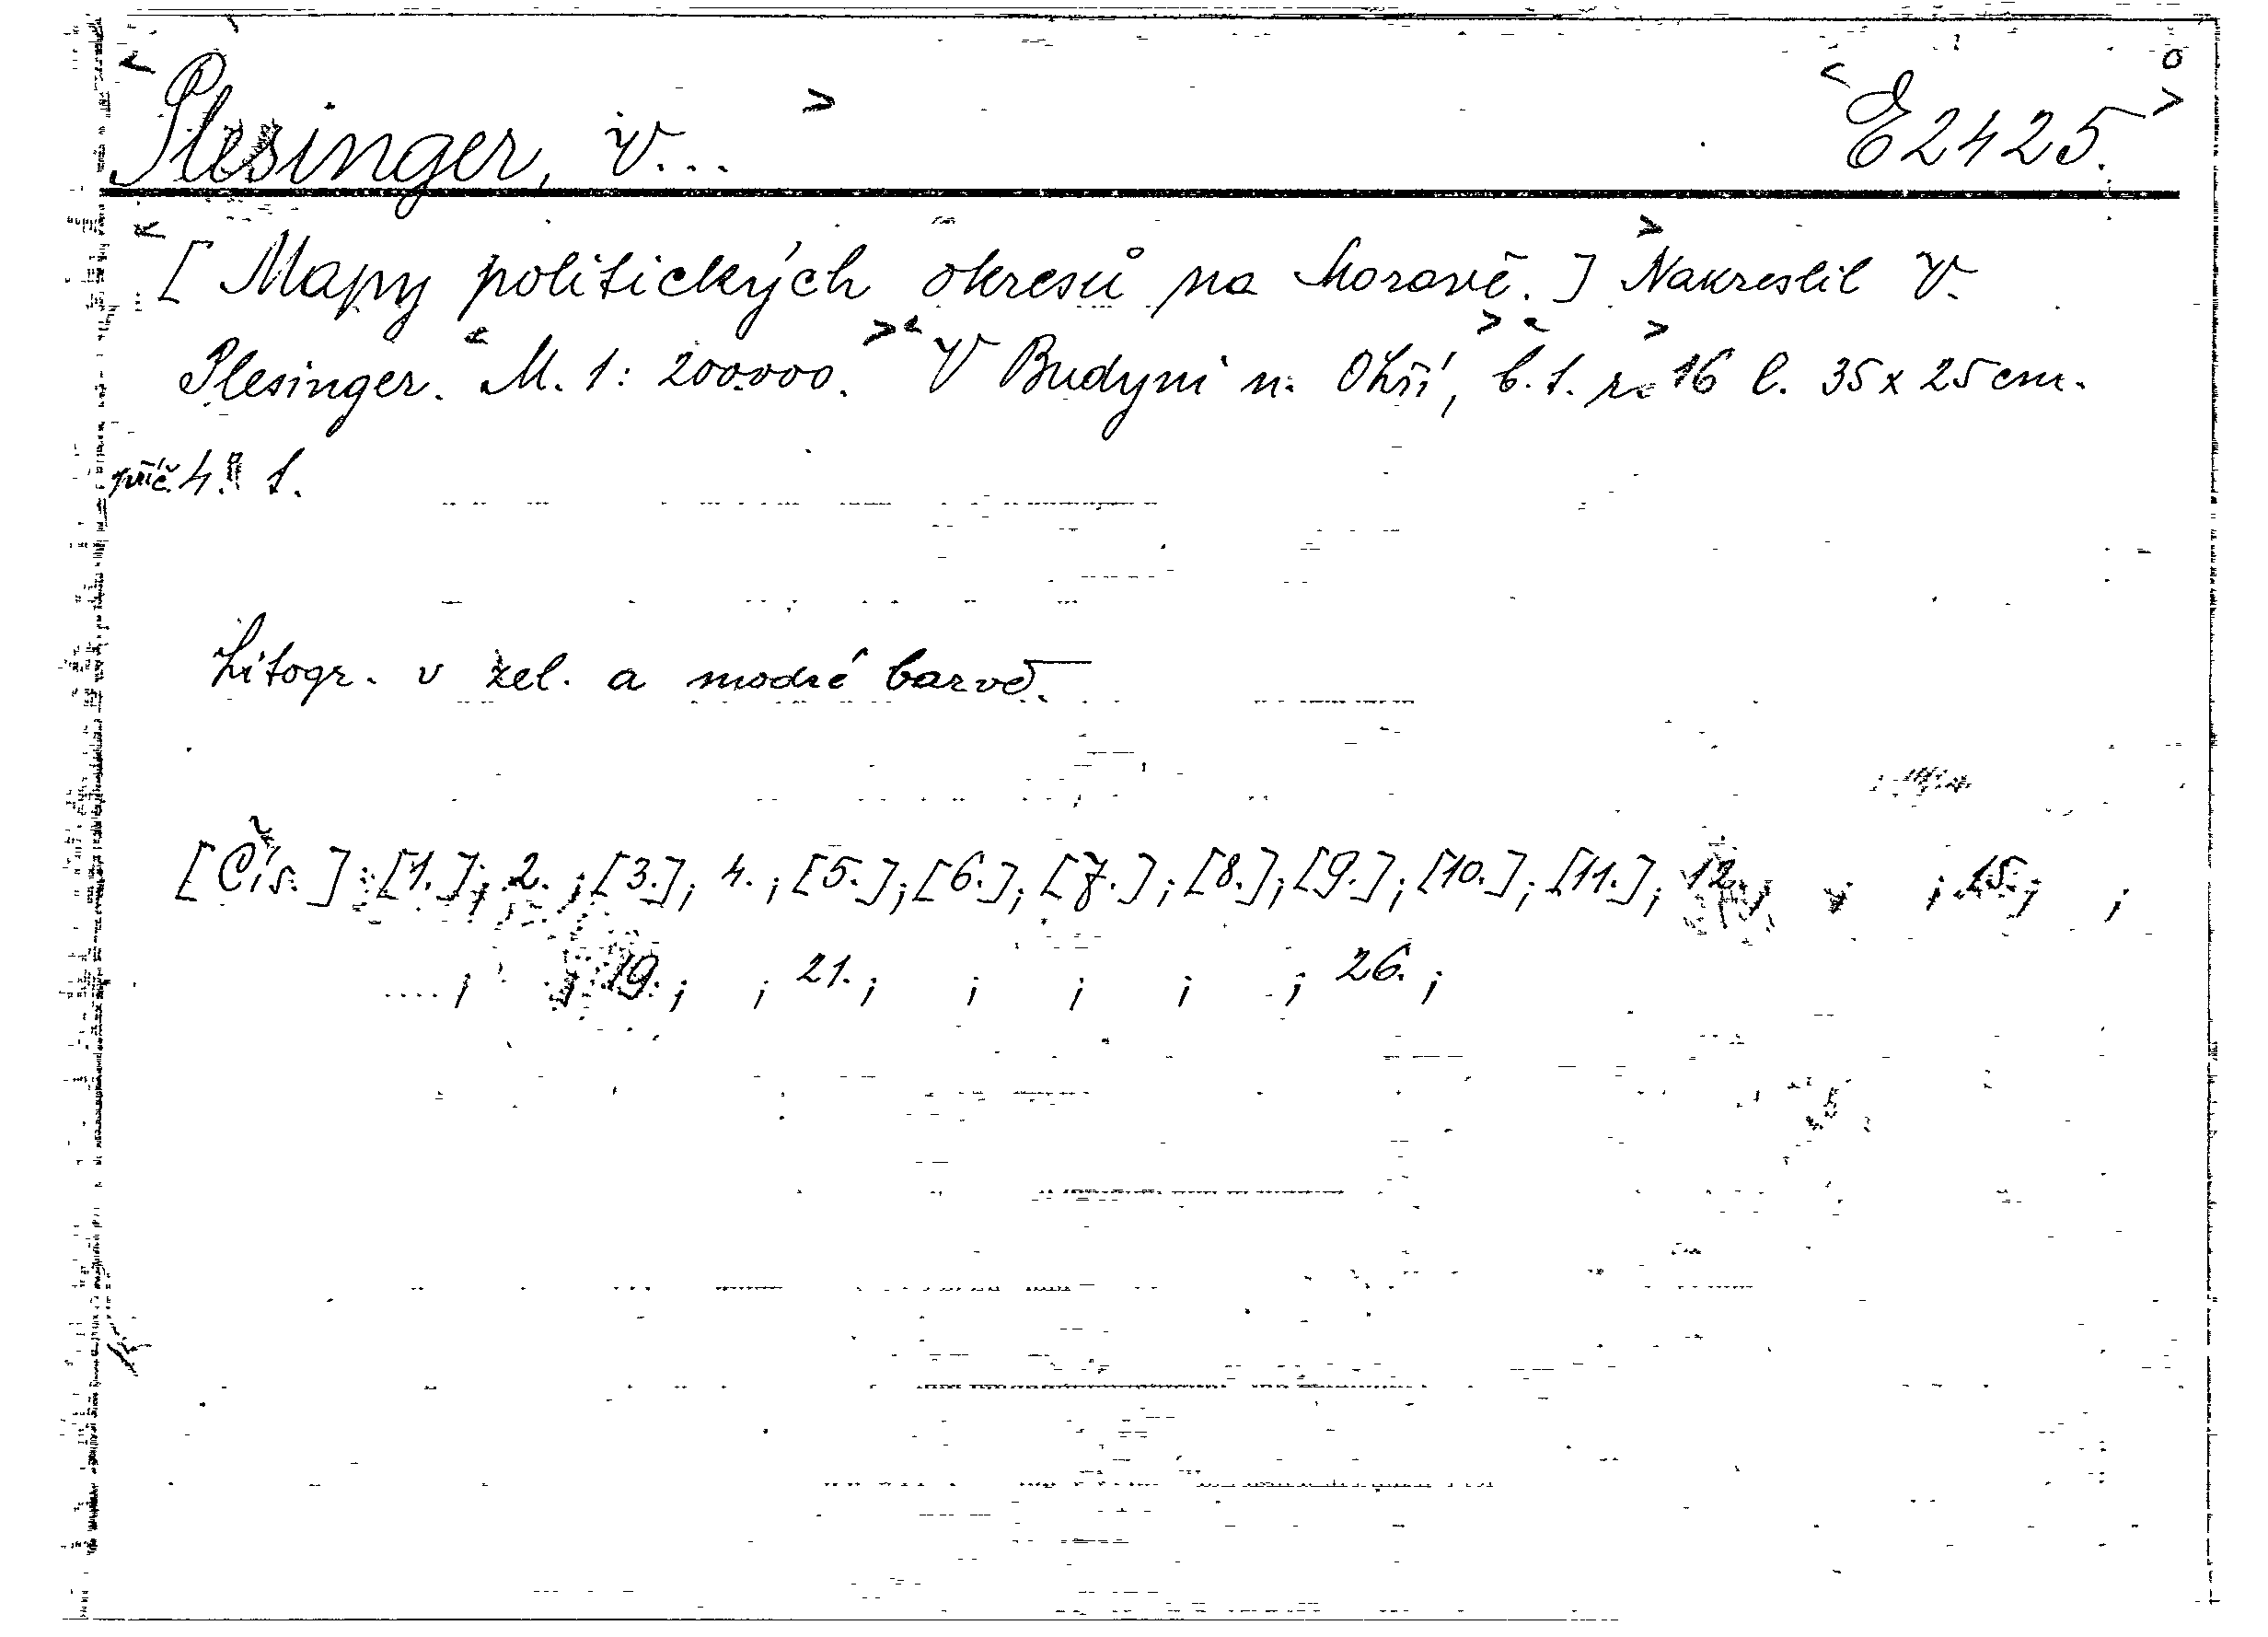 Plesinger, V... E 2425.
[Mapy politických okresů na Moravě.] Nakreslil V.
Plesinger. M. 1: 200.000. V Budyni n. Ohří, b. t. r. 16 l. 35 x 25 cm.
příč. 4.° 1.
Litogr. v zel. a modré barvě.
[Čís.]: [1.]; 2. ; [3.]; 4. ; [5.]; [6.]; [7.]; [8.]; [9.]; [10.]; [11.]; 12. ; ; ; 15. ; ;
; ; 19. ; ; 21. ; ; ; ; ; 26. ;